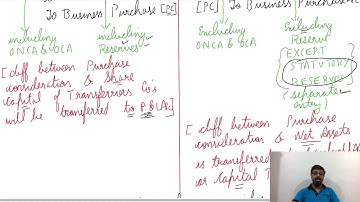 To Business Purchase [PC]
including
ONCA & OCA
including
Reserves
[diff between Purchase
consideration & Share
capital of Transferrors Co's
will be transferred to P & L A/c]
[PC] To Business Purchase
including
ONCA & OCA
Excluding
Reserve
EXCEPT
STATUTORY
RESERVES
(separate
entry)
[diff between Purchase
consideration & Net Assets
is transferred
or capital